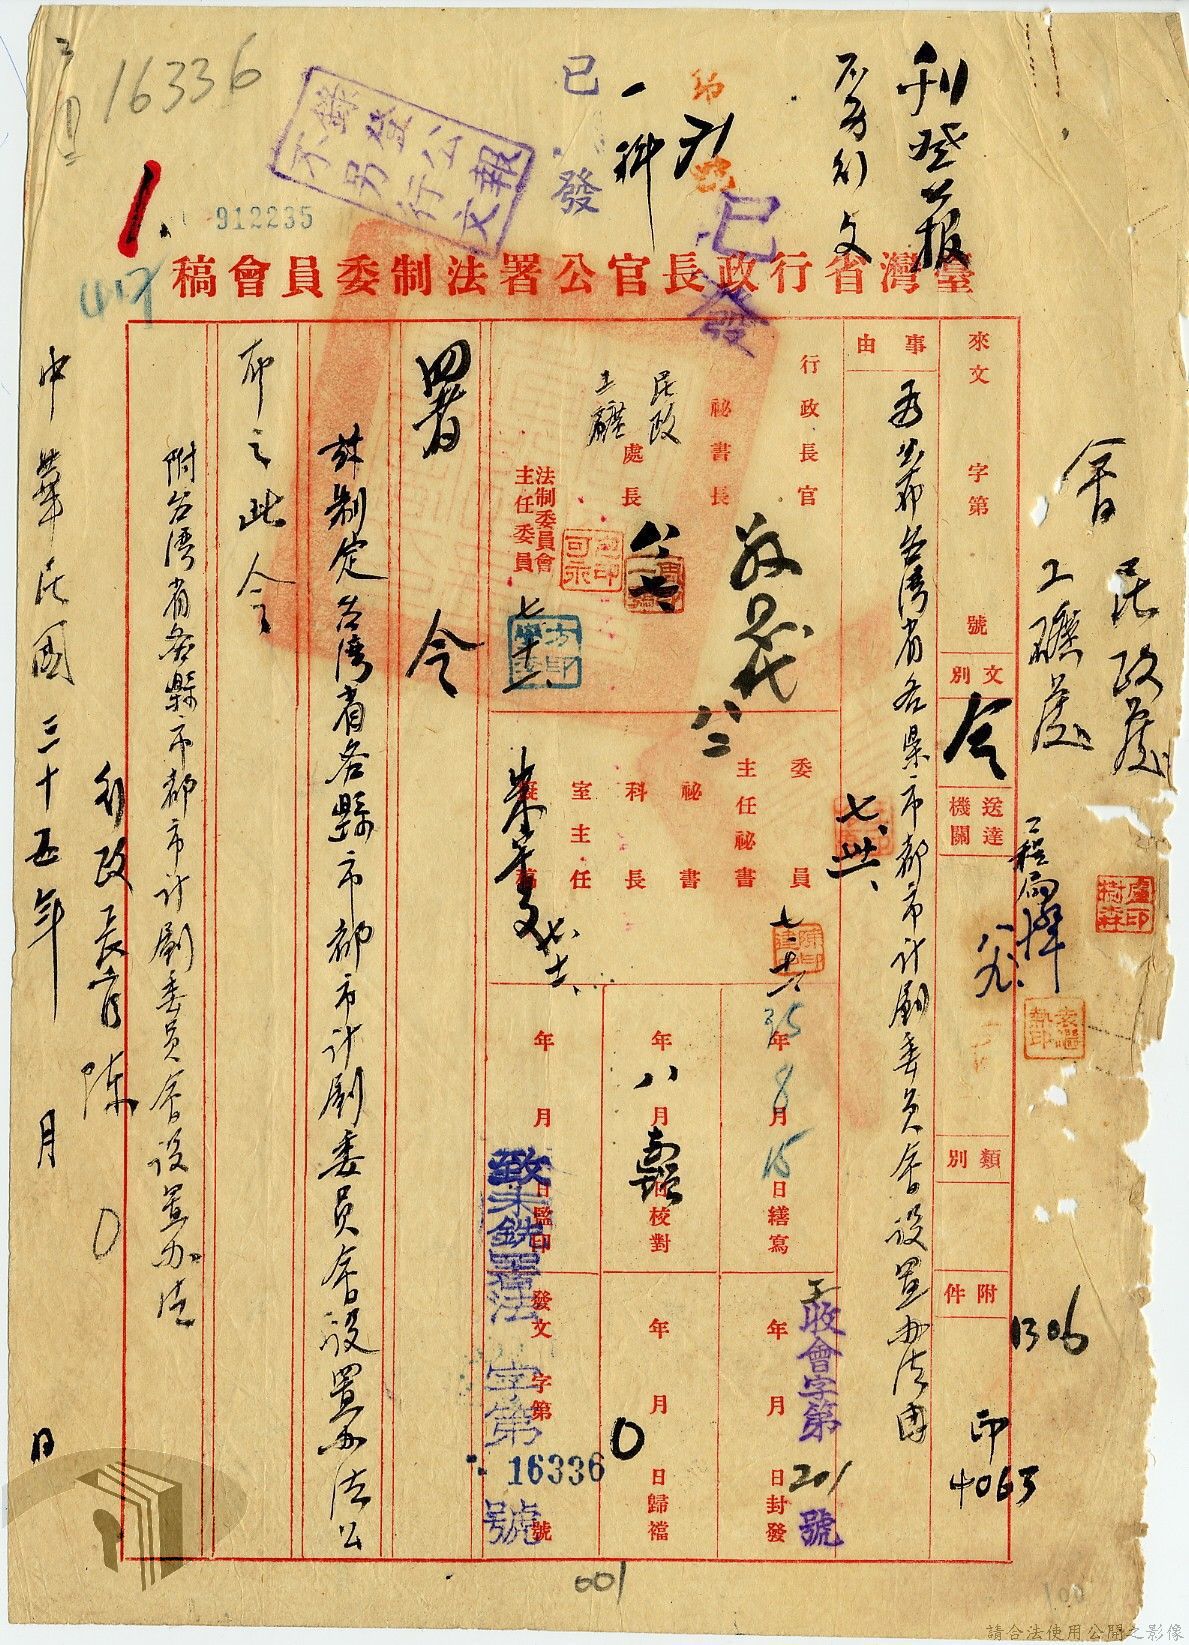 16336
912235
錄登公報
不另行文
已發
一科
刊登公報
不另行文
已發
臺灣省行政長官公署法制委員會稿
會
民政處
工礦處
來文 字第 號
文別
令
送達機關
類別
附件
事由
為公布台灣省各県市都市計劃委員會設置办法由
行政長官
秘書長
民政
工礦
處長
法制委員會
主任委員
委員
主任秘書
秘書
科長
室主任
擬稿
35年8月15日繕寫
年八月 日校對
年 月 日監印
年 月 日封發
年 月 日歸檔
發文 字第 號
致未銑署法 字第 16336 號
收會字第 201 號
1306
印
4063
署 令
茲制定台湾省各縣市都市計劃委員會設置办法公
布之此令
附台湾省各縣市都市計劃委員會設置办法
行政長官陳
中華民國三十五年 月 日
001
100
請合法使用公開之影像